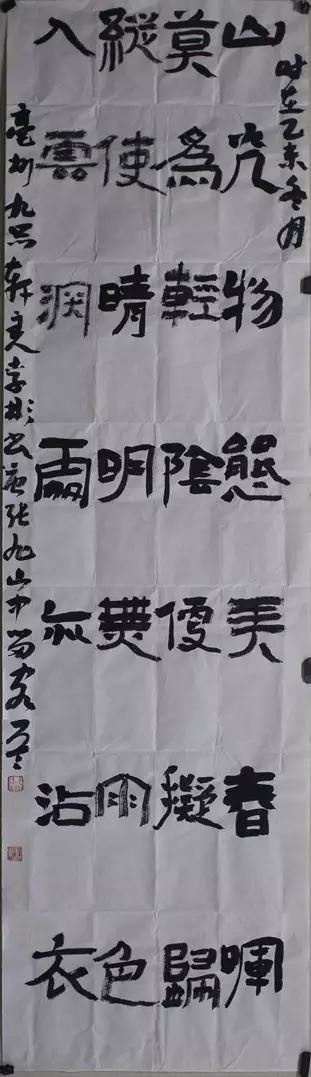 時在乙未冬月
山光物態美春暉
莫為輕陰便擬歸
縱使晴明無雨色
入雲深處亦沾衣
亳州九軒李彬書張旭山中留客